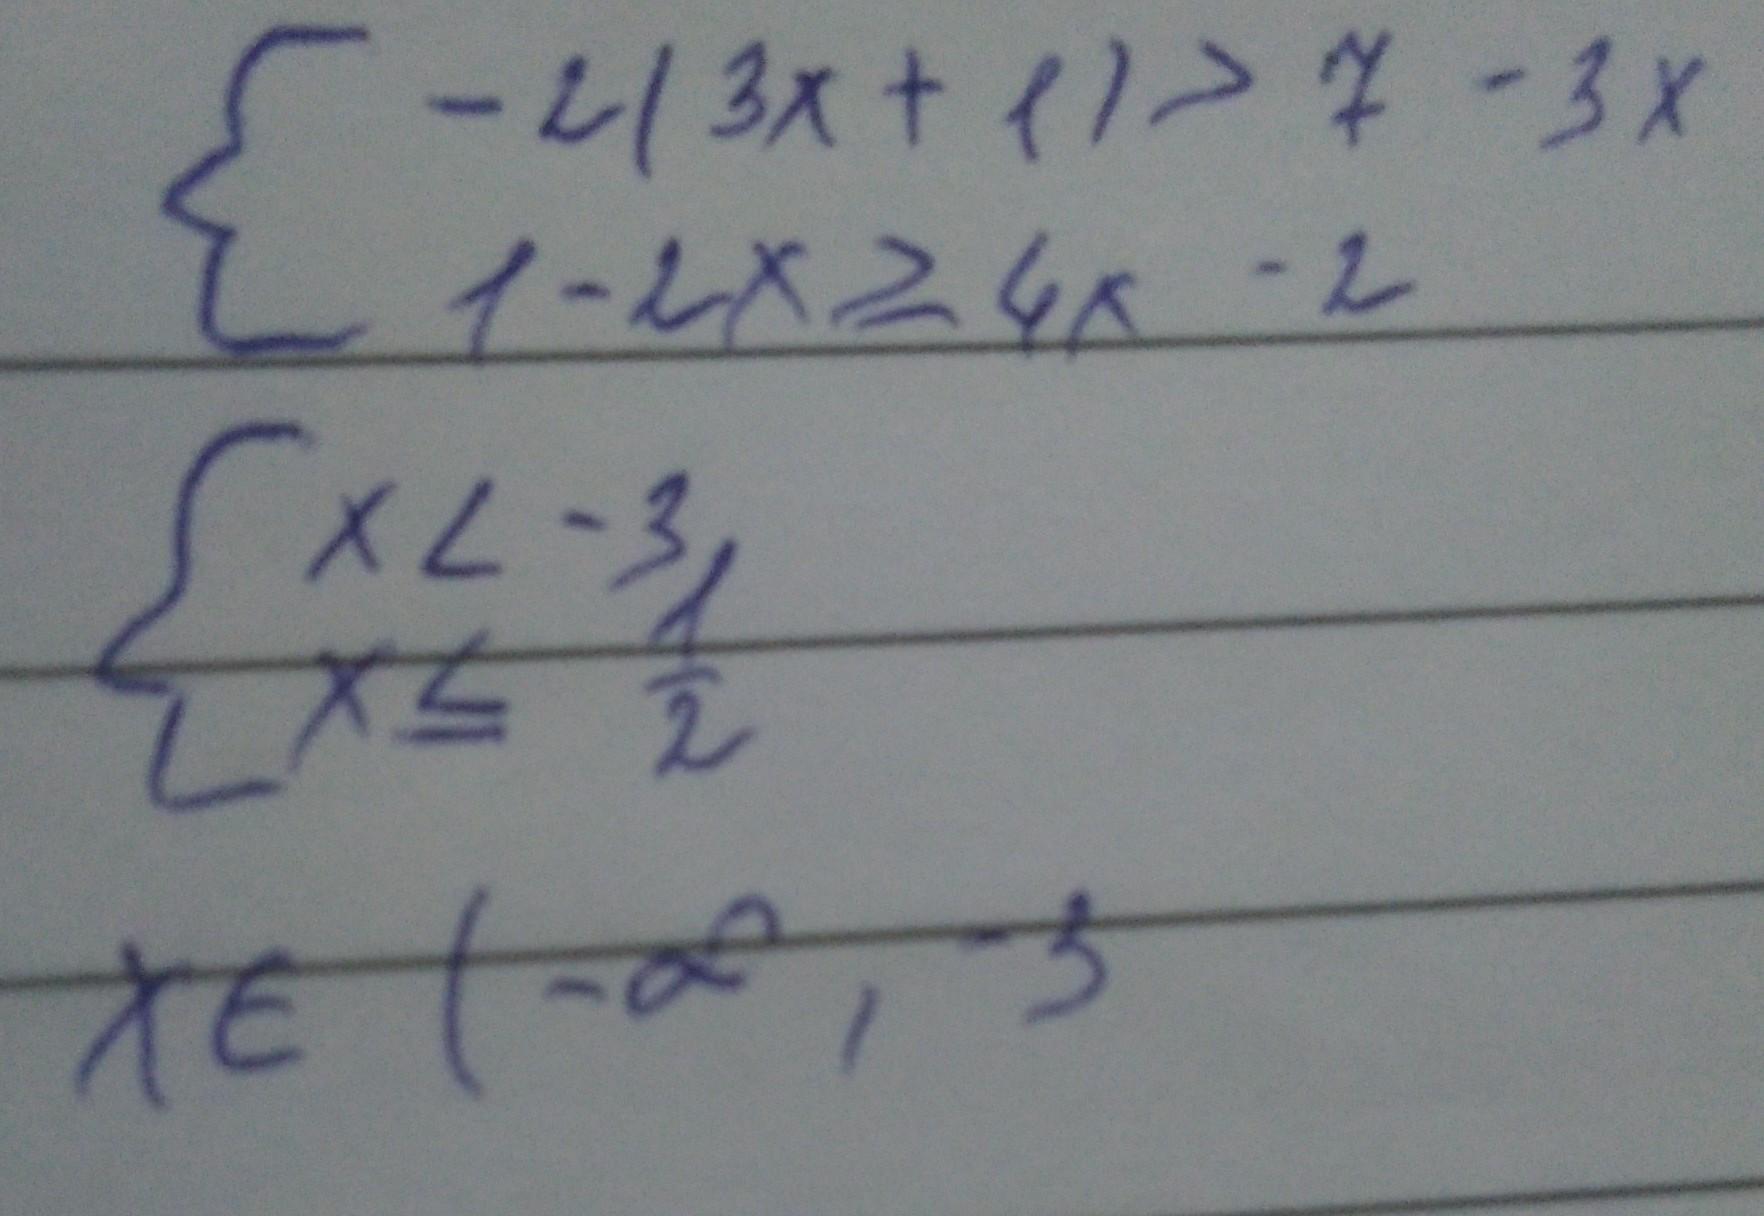 -2(3x + 1) > 7 - 3x
1 - 2x ≥ 4x - 2
x < -3
x ≤ 1/2
x ∈ (-∞, -3